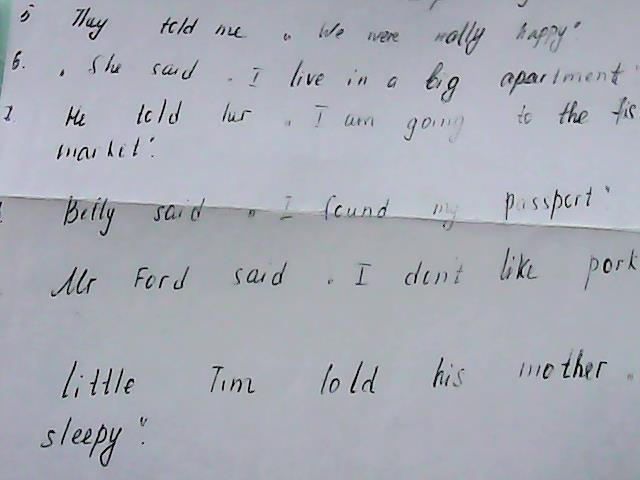 5 They told me „ We were really happy".
6. „ She said „ I live in a big apartment"
7. He told her „ I am going to the fis
market".
Betty said „ I found my passport"
Mr Ford said „ I don't like pork
little Tim told his mother „
sleepy".